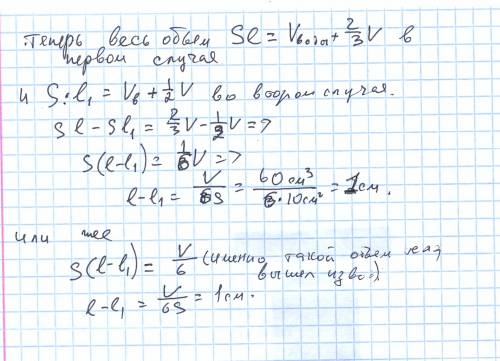 Теперь весь объем Sl = Vводы + 2/3 V в
первом случая
и S·l₁ = Vв + 1/2 V во втором случая.
Sl - Sl₁ = 2/3 V - 1/2 V =>
S(l-l₁) = 1/6 V =>
l-l₁ = V/6S = 60 см³/6·10см² = 1см.
или же
S(l-l₁) = V/6 (именно такой объем
вышел из воды)
l-l₁ = V/6S = 1см.